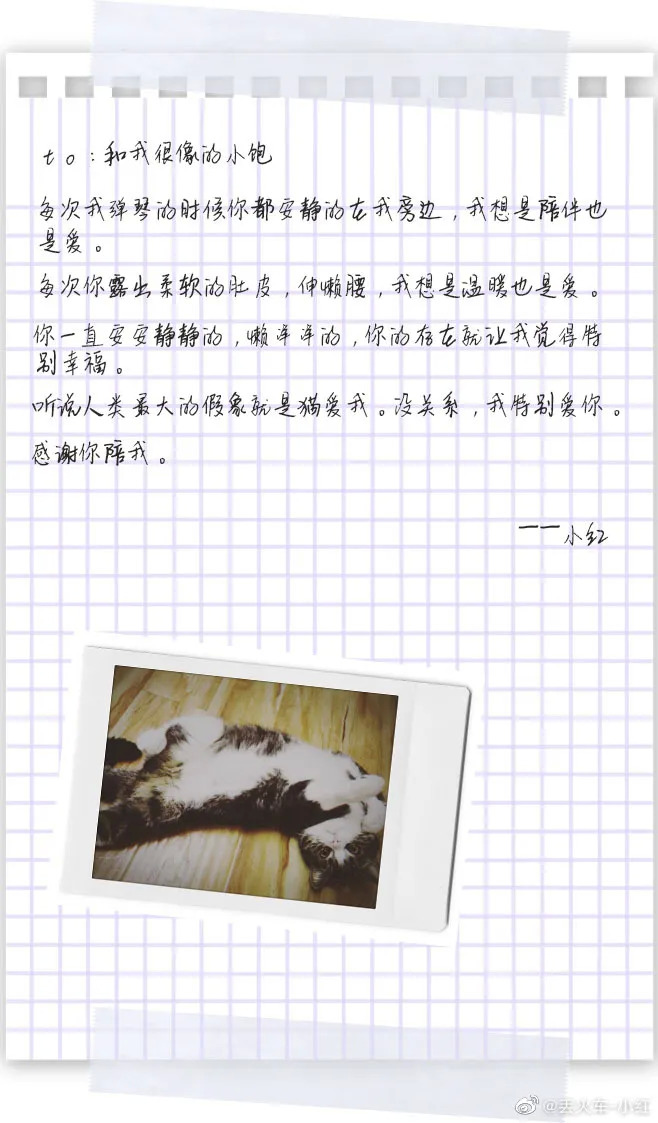 to:和我很像的小饱
每次我弹琴的时候你都安静的在我旁边,我想是陪伴也
是爱。
每次你露出柔软的肚皮,伸懒腰,我想是温暖也是爱。
你一直安安静静的,懒洋洋的,你的存在就让我觉得特
别幸福。
听说人类最大的假象就是猫爱我。没关系,我特别爱你。
感谢你陪我。
——小红
@丢火车-小红